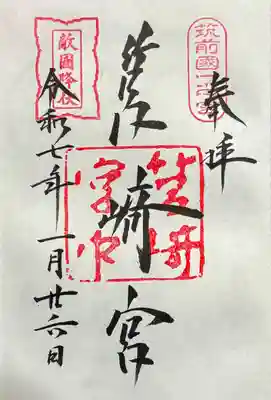 奉拝
筑前國一之宮
筥崎宮
筥崎宮印
敵國降伏
令和七年一月廿六日